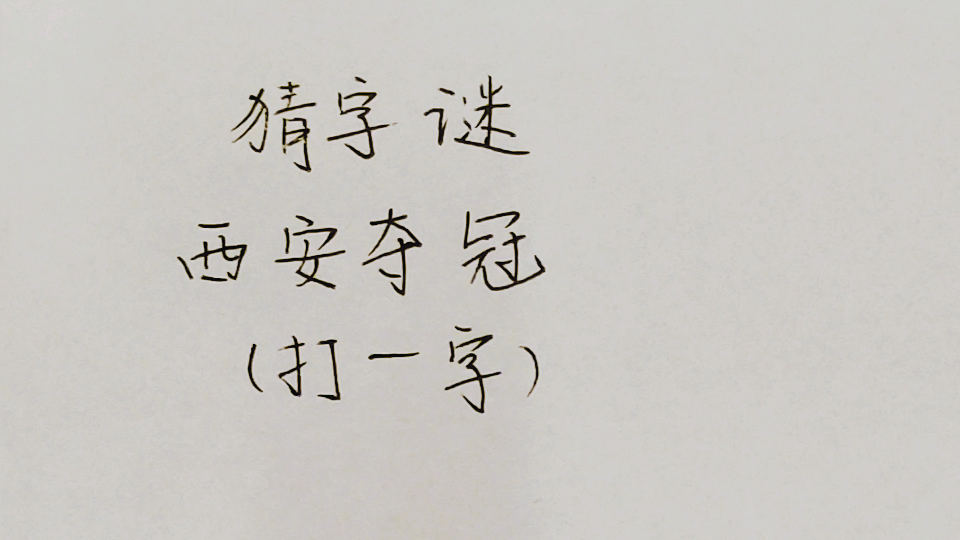 猜字谜
西安夺冠
(打一字)